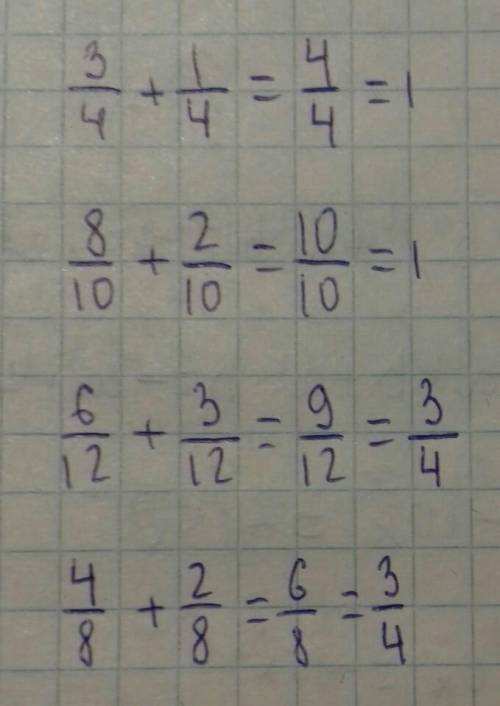 3/4 + 1/4 = 4/4 = 1
8/10 + 2/10 = 10/10 = 1
6/12 + 3/12 = 9/12 = 3/4
4/8 + 2/8 = 6/8 = 3/4